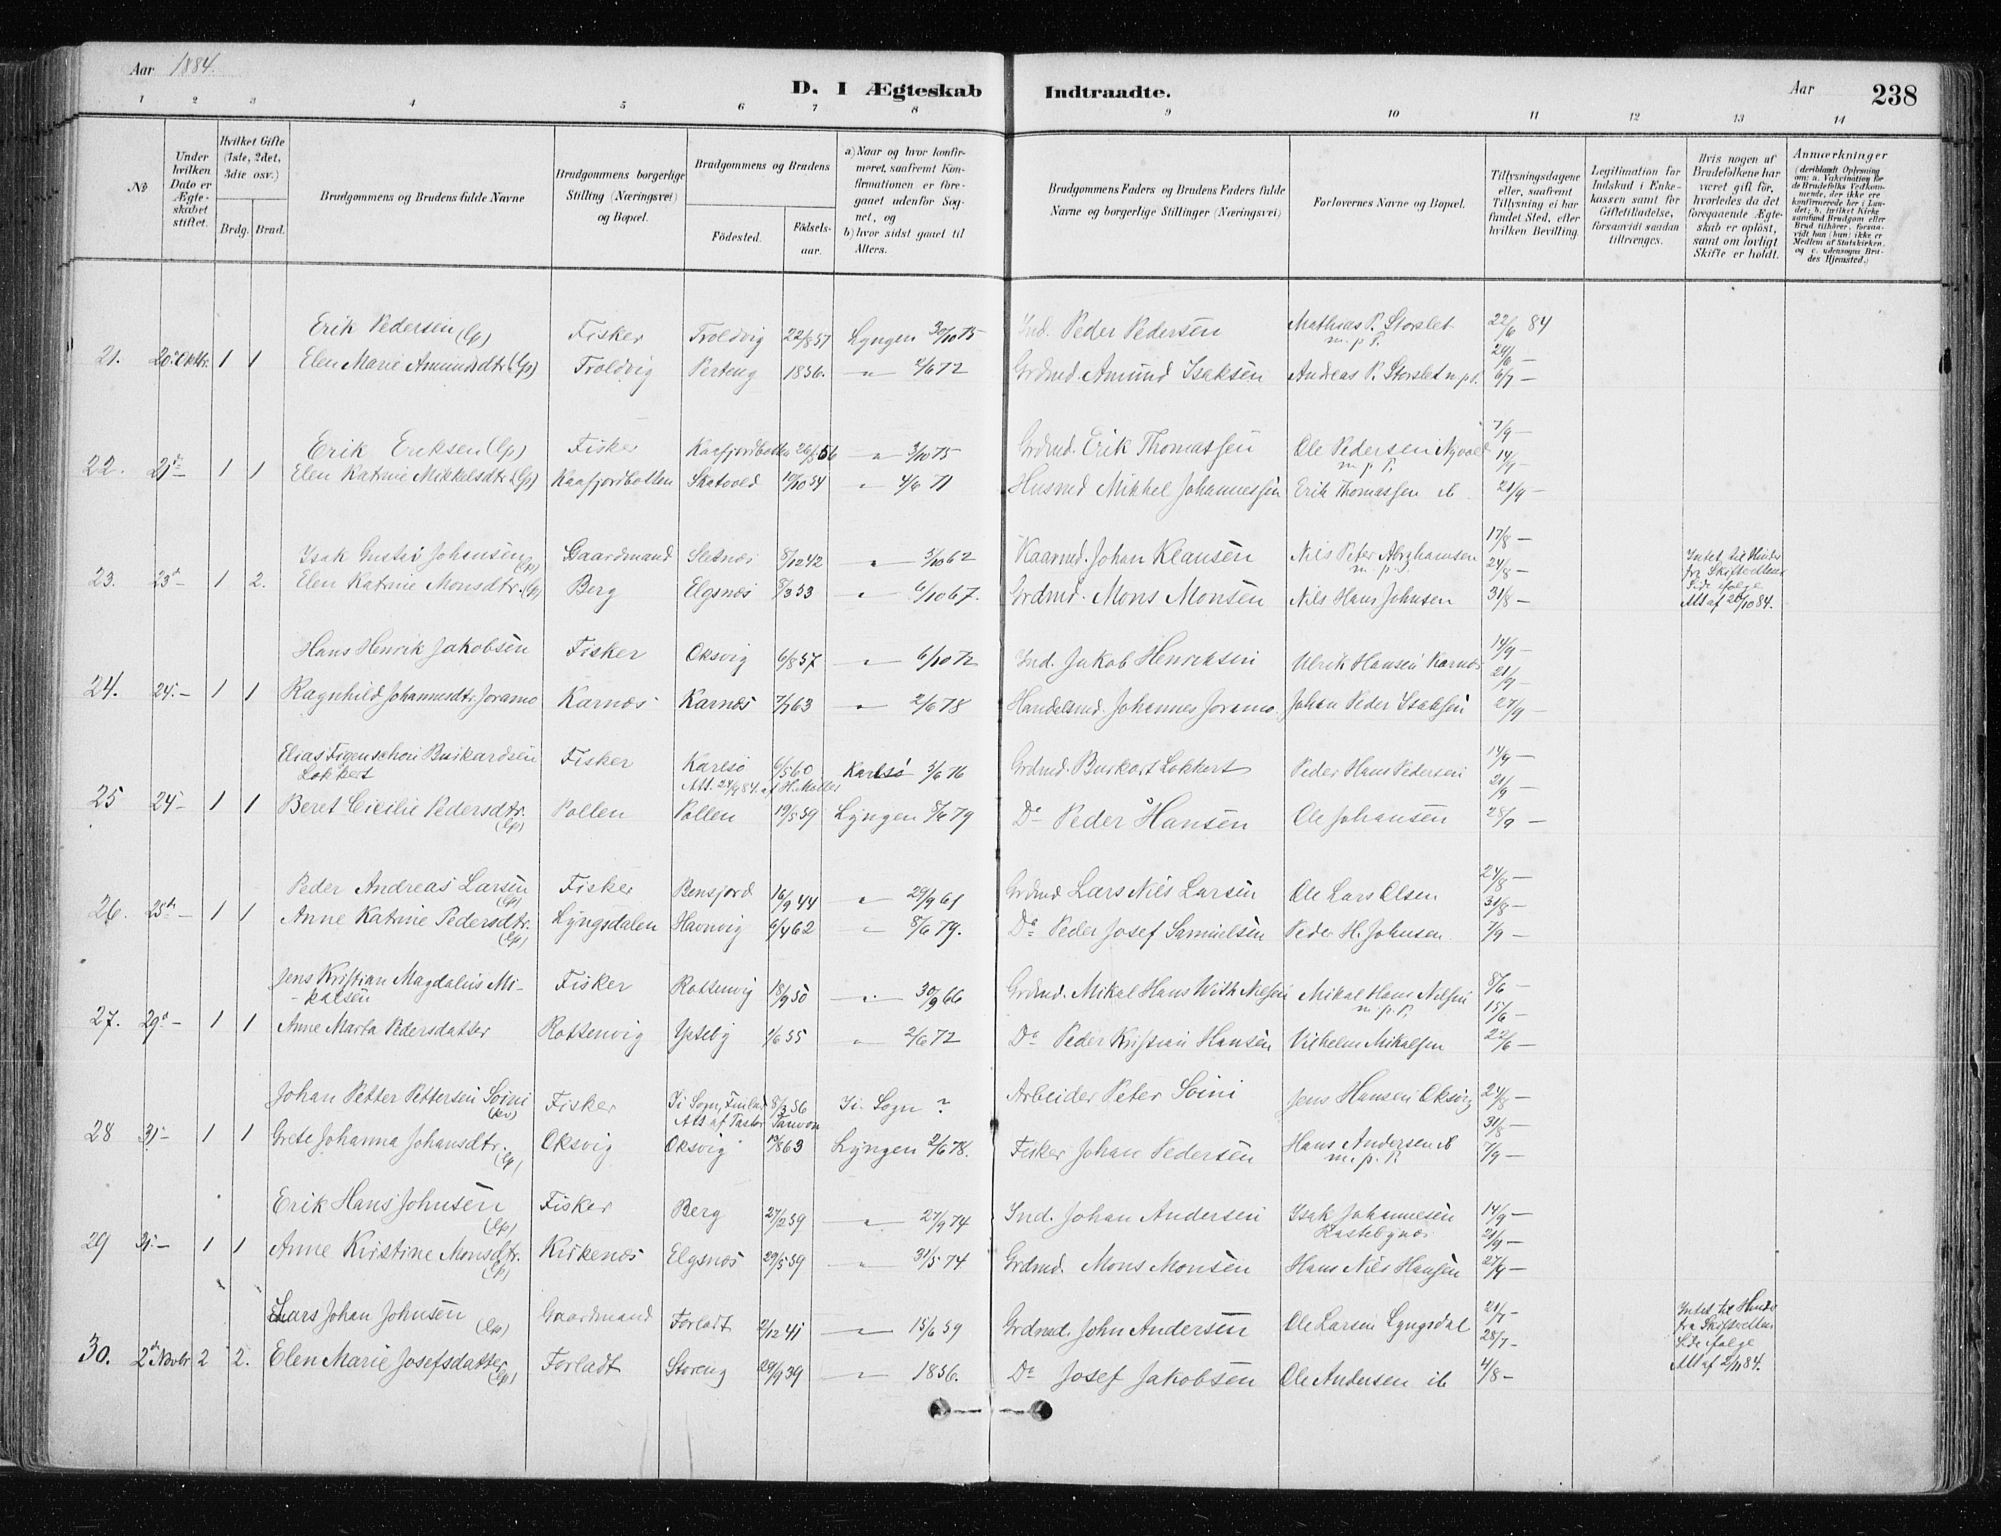 Aar 1884.
D. I Ægteskab Indtraadte.
Aar 238
1 2 3 4 5 6 7 8 9 10 11 12 13 14
No
Under hvilken Dato er Ægteskabet stiftet.
Hvilket Gifte (1ste, 2det, 3die osv.)
Brdg. Brud.
Brudgommens og Brudens fulde Navne
Brudgommens borgerlige Stilling (Næringsvei) og Bopæl.
Brudgommens og Brudens
Fødested. Fødselsaar.
a) Naar og hvor konfirmeret, saafremt Konfirmationen er foregaaet udenfor Sognet, og
b) hvor sidst gaaet til Alters.
Brudgommens Faders og Brudens Faders fulde Navne og borgerlige Stillinger (Næringsvei)
Forlovernes Navne og Bopæl.
Tillysningsdagene eller, saafremt Tillysning ei har fundet Sted, efter hvilken Bevilling.
Legitimation for Indskud i Enkekassen samt for Giftetilladelse, forsaavidt saadan tiltrænges.
Hvis nogen af Brudefolkene har været gift før, hvorledes da det foregaaende Ægteskab er opløst, samt om lovligt Skifte er holdt.
Anmærkninger (deriblandt Oplysning om: a. Vakcination for de Brudefolks Vedkommende, der ikke ere konfirmerede her i Landet; b. hvilket Kirkesamfund Brudgom eller Brud tilhører, forsaavidt han (hun) ikke er Medlem af Statskirken, og c. udensogns Brudes Hjemsted.)
Erik Pedersen (Lp) Fisker Troldvig 22/8 57 Lyngen 30/10 75 Ind. Peder Pedersen Mathias P. Storslet m.p.P. 22/6 84
21. 20de Oktbr. 1 1 Elen Marie Amundsdtr. (Lp) Troldvig Perteng 1856. " 2/6 72 Grdmd. Amund Isaksen Andreas P. Storslet m.p.P. 29/6 — 6/7 —
Erik Eriksen (Lp) Fisker Kaafjordbotten 26/8 56 " 3/10 75 Grdmd. Erik Thomassen Ole Pedersen Nyvold m.p.P. 7/9 —
22. 21de 1 1 Elen Katrine Mikkelsdtr. (Lp) Kaafjordbotten Skatvold 10/10 54 " 4/6 71 Husmd Mikkel Johannessen Erik Thomassen ib. 14/9 — 21/9 —
Isak Gustav Johansen (Lp) Gaardmand Sletnæs 8/12 42 " 5/10 62 Kaarmd. Johan Klausen Nils Peter Abrahamsen m.p.P. 17/8 —
23. 23de 1 2. Elen Katrine Monsdtr. (Lp) Berg Elgsnæs 8/3 53 " 6/10 67. Grdmd. Mons Monsen Nils Hans Johnsen 24/8 — 31/8 —
Intet til Hinder
fra Skifterettens
Side ifølge
Att af 20/10 84.
Hans Henrik Jakobsen Fisker Oksvig 6/8 57 " 6/10 72 Ind. Jakob Henriksen Ulrik Hansen Karnæs 14/9 —
24. 24. — 1 1 Ragnhild Johannesdtr. Joramo Karnæs Karnæs 7/7 63 " 2/6 78 Handelsmd. Johannes Joramo. Johan Peder Isaksen 21/9 — 27/9 —
Elias Figenschou Burkardsen Lokkert Fisker Karlsø 6/5 60 Karlsø 3/6 76 Grdmd. Burkart Lokkert Peder Hans Pedersen 14/9 —
Att. 24/9 84. af H. Møller
25 24 — 1 1 Beret Cicilie Pedersdtr. (Lp) Pollen Pollen 19/5 59 Lyngen 8/6 79 Do Peder Hansen Ole Johansen 21/9 — 28/9 —
Peder Andreas Larsen (Lp) Fisker Bensjord 16/9 44 " 29/9 61 Grdmd Lars Nils Larsen Ole Lars Olsen 24/8 —
26. 25de 1 1 Anne Katrine Pedersdtr. (Lp) Lyngsdalen Havnvig 6/4 62 " 8/6 79. Do Peder Josef Samuelsen Peder H. Johnsen. 31/8 — 7/9 —
Jens Kristian Magdalius Mikalsen Fisker Rottenvig 18/9 50 " 30/9 66 Grdmd. Mikal Hans With Nilsen Mikal Hans Nilsen m.p.P. 8/6 —
27. 29de — 1 1 Anne Marta Pedersdatter Rottenvig Ytteby 1/6 55 " 2/6 72 Do Peder Kristian Hansen Vilhelm Mikalsen 15/6 — 22/6 —
Johan Petter Pettersen Soini (kv) Fisker Ii Sogn, Finland 8/3 56 Ii. Sogn ? Arbeider Peter Soini Jens Hansen Oksvig 24/8 —
Att af Pastor
28 31 — 1 1 Grete Johanna Johansdtr. (Lp) Oksvig Oksvig 19/8 63 Lyngen 2/6 78. Fisker Johan Pedersen Hans Andersen ib m.p.P. 31/8 — 7/9 —
Erik Hans Johnsen (Lp) Fisker Berg 27/2 59 " 27/9 74 Ind. Johan Andersen Isak Johannesen 14/9 —
29 31. — 1 1 Anne Kirstine Monsdtr. (Lp) Kirkenæs Elgsnæs 29/5 59 " 31/5 74 Grdmd. Mons Monsen Hans Nils Hansen 21/9 — 27/9 —
Lars Johan Johnsen (Lp) Gaardmand Forladt 2/12 41 " 15/6 59 Grdmd. John Andersen Ole Larsen Lyngsdal 21/7 —
30. 2de Novbr 2 2. Elen Marie Josefsdatter (Lp) Forladt Storeng 29/9 39 " 1856. Do Josef Jakobsen Ole Andersen ib 28/7 — 4/8 —
Intet til Hinder
fra Skifteretten
Side ifølge
Att af 2/11 84.